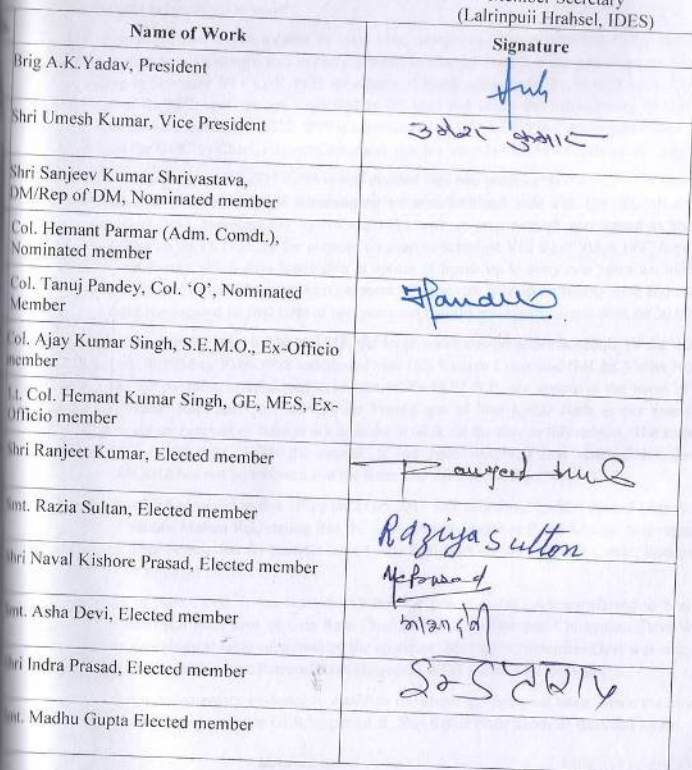 (Lalrinpuii Hrahsel, IDES)
Name of Work
Signature
Brig A.K.Yadav, President
Shri Umesh Kumar, Vice President
उमेश कुमार
Shri Sanjeev Kumar Shrivastava,
DM/Rep of DM, Nominated member
Col. Hemant Parmar (Adm. Comdt.),
Nominated member
Col. Tanuj Pandey, Col. 'Q', Nominated
Member
Col. Ajay Kumar Singh, S.E.M.O., Ex-Officio
member
Lt. Col. Hemant Kumar Singh, GE, MES, Ex-
Officio member
Shri Ranjeet Kumar, Elected member
Smt. Razia Sultan, Elected member
Raziya Sultan
Shri Naval Kishore Prasad, Elected member
NKPrasad
Smt. Asha Devi, Elected member
Shri Indra Prasad, Elected member
Smt. Madhu Gupta Elected member